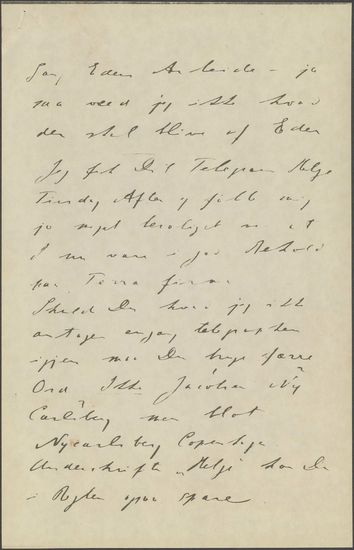 Eders Arbeide – ja
saa veed jeg ikke hvad
der skal blive af Eder
Jeg fik Dit Telegram Helge
Tirsdag Aften og følte mig
jo meget beroliget
I nu vare i god Behold
paa Terra firma
Skuld Du hvad jeg ikke
antager engang telegraphere
igjen maa Du bruge færre
Ord Ikke Jacobsen Ny
Carlsberg men blot
Nycarlsberg Copenhagen
Underskriften „Helge" kan Du
i Reglen ogsaa spare